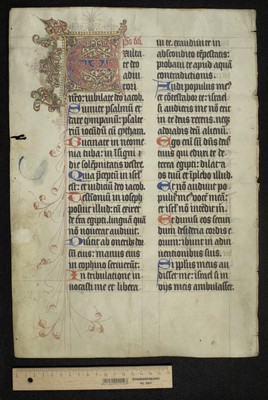 xulta
te deo
adiu
tori
nr̄o: iubilate deo iacob.
Sumite psalmū et
date tympanū: psalte
riū iocūdū cū cythara.
Buccinate in neome
nia tuba: in īsigni
die solēpnitatis vestre.
Quia preceptū in isrl̄
est: et iudiciū deo iacob.
Testimoniū in ioseph
posuit illud: cū exiret
de trā egypti. linguā quā
nō nouerat audiuit.
Diuertit ab oneribꝰ dor
sū eius: manus eius
in cophino seruierūt.
In tribulatione in
uocasti me et libera
ui te. exaudiui te in
abscondito tēpestatis:
probaui te apud aquā
contradictionis.
Audi populus meꝰ
et cōtestabor te: israel
si audieris me nō erit
in te deus recens. neqꝫ
adorabis deū alienū.
Ego eī sū dn̄s deꝰ
tuus qui eduxi te de
terra egypti: dilata
os tuū et īplebo illud.
Et nō audiuit po
pulꝰ meꝰ vocē meā:
et isrl̄ nō intēdit m̄.
Et dimisi eos secun
dum desideria cordis e
orum: ibunt in adin
uentionibus suis.
Si popłus meus au
disset me: israel si in
viis meis ambulasset.